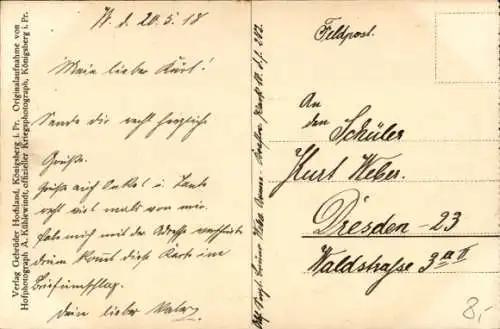 K. d. 20.5.18
Mein lieber Kurt!
Sende dir recht herzliche
Grüße.
Grüße auch Onkel u. Tante
recht viel mals von mir.
Habe mich mit der Adresse
drum kommt diese Karte im
Briefumschlag.
Dein lieber Vater
Verlag Gebrüder Hochland, Königsberg i. Pr. Originalaufnahme von
Hofphotograph A. Kühlewindt, offizieller Kriegsphotograph, Königsberg i. Pr.
Feldpost.
An
den Schüler
Kurt Weber.
Dresden - 23
Waldstraße 3 a II
8,-